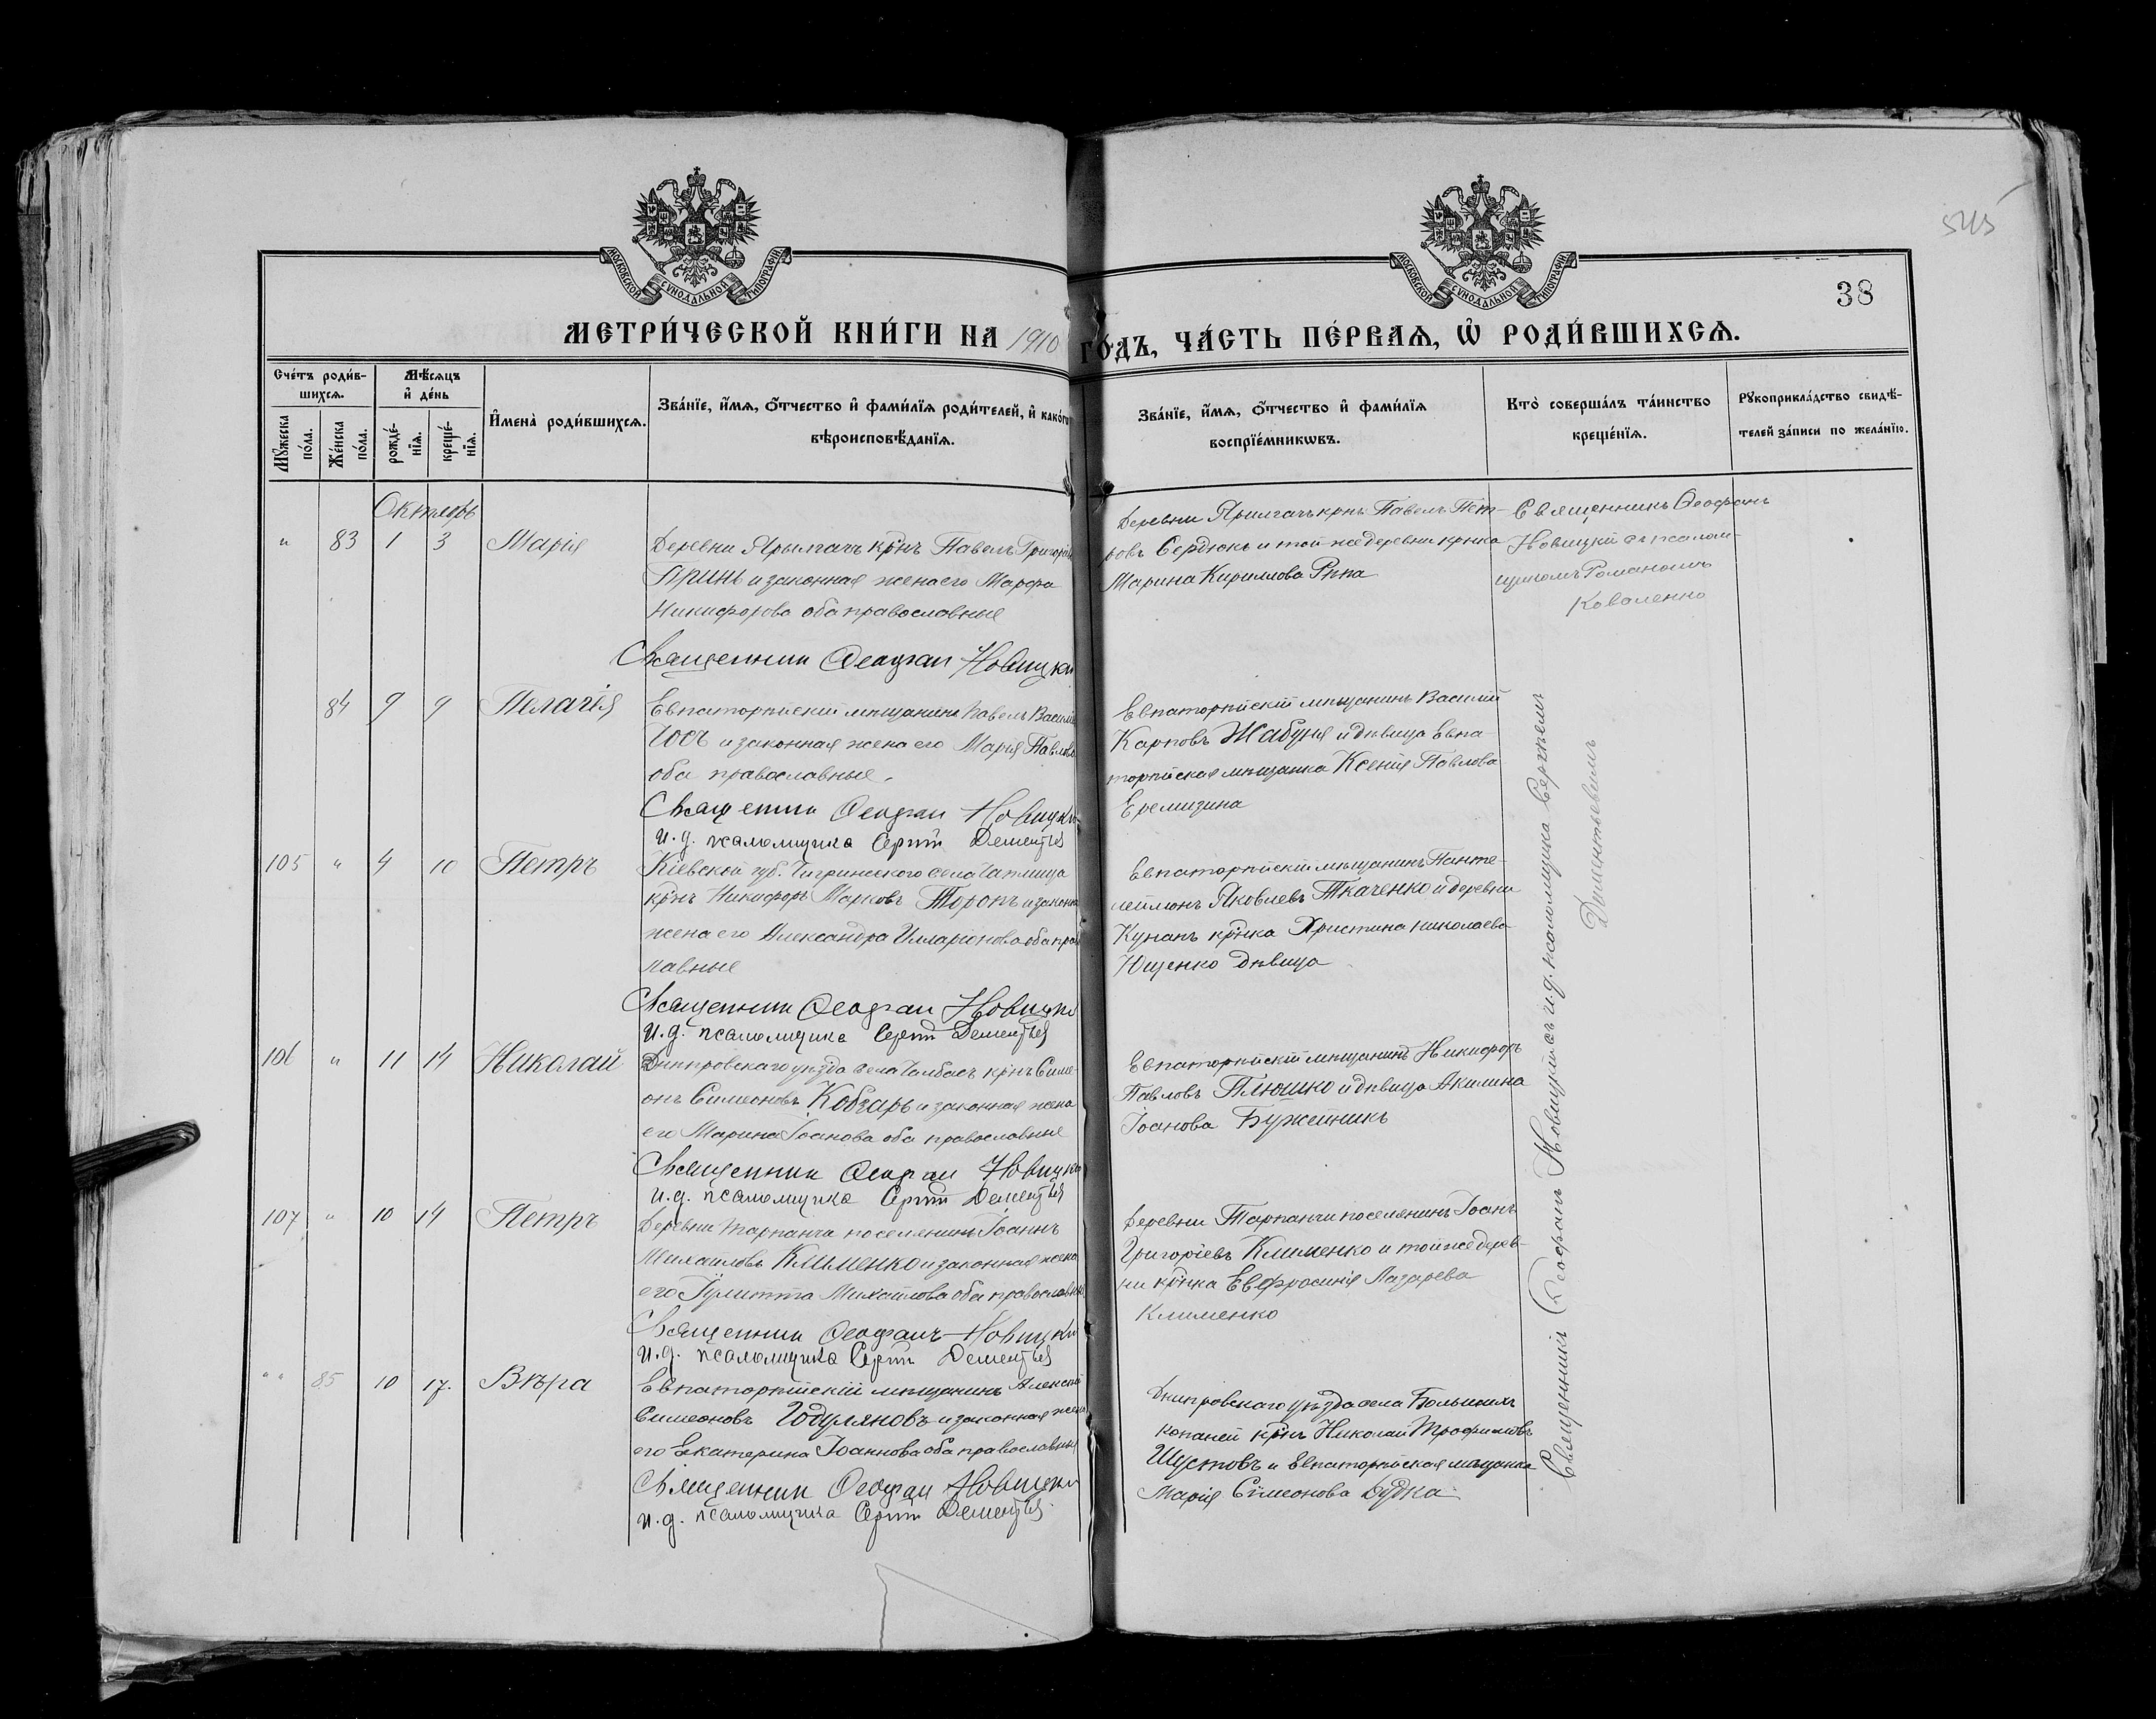 545
38
МОСКОВСКОЙ СѴНОДАЛЬНОЙ ТИПОГРАФІИ
МОСКОВСКОЙ СѴНОДАЛЬНОЙ ТИПОГРАФІИ
МЕТРИ́ЧЕСКОЙ КНИ́ГИ НА 1910 ГО́ДЪ, ЧА́СТЬ ПЕ́РВАѦ, Ѡ҆ РОДИ́ВШИХСѦ.
Сче́тъ роди́в-
шихсѧ.
Мѣ́сѧцъ
и҆ де́нь
Мꙋ́жеска
по́ла.
Же́нска
по́ла.
рожде́-
нїѧ.
креще́-
нїѧ.
И҆мена̀ роди́вшихсѧ.
Зва́нїе, и҆́мѧ, ѻ҆́тчество и҆ фами́лїѧ роди́телей, и҆ како́гѡ
вѣроисповѣ́данїѧ.
Зва́нїе, и҆́мѧ, ѻ҆́тчество и҆ фами́лїѧ
воспрїе́мникѡвъ.
Кто̀ соверша́лъ та́инство
креще́нїѧ.
Рꙋкоприкла́дство свидѣ́-
телей за́писи по жела́нїю.
Октябрь
" 83 1 3 Марія
Деревни Ярылгачъ крнъ Павелъ Григорьев
и законная жена его Марфа
Никифорова оба православные
Священник Феофан Новицкий
Деревни Ярылгачъ крнъ Павелъ Пет-
ровъ Сердюкъ и той же деревни крнка
Марина Кириллова Рѣпа
Священникъ Ѳеофанъ
Новицкій съ псалом-
щикомъ Романомъ
Коваленко
84 9 9 Пелагія
Евпаторійскій мѣщанинъ Павелъ Василь
и законная жена его Марія Павлова
оба православные.
Священник Феофан Новицкий
и.д. псаломщика Сергій Дементьев
Евпаторійскій мѣщанинъ Василій
Карповъ Жабуня и дѣвица Евпа-
торійская мѣщанка Ксенія Павлова
Еремизина
105 " 4 10 Петръ
Кіевской губ. Чигринского села
крнъ Никифоръ Марковъ Торопъ и законна
жена его Александра Илларіонова оба прав
лавные
Священник Феофан Новицкий
и.д. псаломщика Сергій Дементьев
Евпаторійскій мѣщанинъ Панте-
леймонъ Яковлевъ Ткаченко и деревни
Кунанъ крнка Христина Николаева
Ющенко дѣвица
106 " 11 14 Николай
Днѣпровскаго уѣзда села Чалбасъ крнъ Симе-
онъ Симеоновъ Кобзарь и законная жена
его Марина Іоанова оба православные
Священник Феофан Новицкий
и.д. псаломщика Сергій Дементьев
Евпаторійскій мѣщанинъ Никифоръ
Павловъ Плюшко и дѣвица Акилина
Іоанова Бужейникъ
107 " 10 14 Петръ
Деревни Тарпанчи поселянинъ Іоаннъ
Михаиловъ Клименко и законная жена
его Іулитта Михаилова оба православные
Священник Феофанъ Новицкий
и.д. псаломщика Сергій Дементьев
Деревни Тарпанчи поселянинъ Іоанъ
Григоріевъ Клименко и той же дерев-
ни крнка Евфросинія Лазарева
Клименко
" " 85 10 17. Вѣра
Евпаторійскій мѣщанинъ Алексѣй
Симеоновъ Годуляновъ и законная жена
его Екатерина Іоаннова оба православные
Священник Феофан Новицкий
и.д. псаломщика Сергій Дементьев
Днѣпровскаго уѣзда села Большихъ
копаней крнъ Николай Трофимовъ
Шустовъ и Евпаторійская мѣщанка
Марія Сѵмеонова Дудка
Священникъ Ѳеофанъ Новицкій съ и.д. псаломщика Сергѣемъ
Дементьевымъ